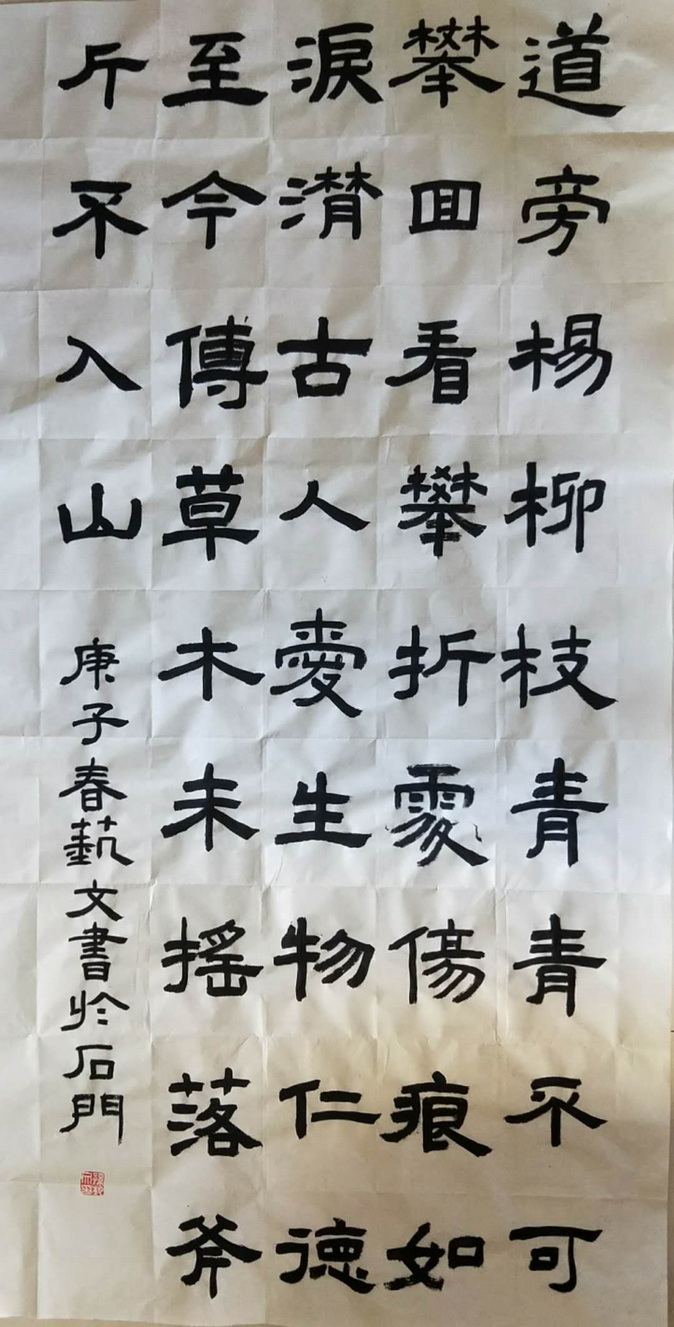 道旁楊柳枝青青不可
攀回看攀折處傷痕如
淚潸古人愛生物仁德
至今傳草木未搖落斧
斤不入山
庚子春藝文書於石門